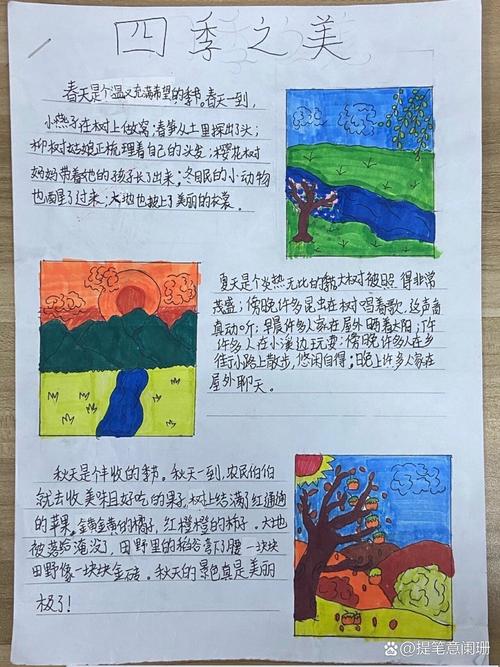 四季之美
春天是个温又充满希望的季节。春天一到，
小燕子在树上做窝；春笋从土里探出了头；
柳树姑娘正梳理着自己的头发；樱花树
妈妈带着她的孩子长了出来；冬眠的小动物
也醒了过来；大地也披上了美丽的衣裳。
夏天是个炎热无比的季节大树被日 得非常
茂盛；傍晚许多昆虫在树唱着歌，这声音
真动听；早晨许多人家在屋外晒着太阳；下午
许多人在小溪边玩耍；傍晚许多人在乡
街小路上散步，悠闲自得；晚上许多人家在
屋外聊天。
秋天是个丰收的季节。秋天一到，农民伯伯
就去收美味且好吃的果子，树上结满了红通通
的苹果，金黄金黄的橘子，红橙橙的柿子。大地
被落给淹没了，田野里的稻谷弯下了腰一块块
田野像一块块金砖。秋天的景色真是美丽
极了！
@提笔意阑珊